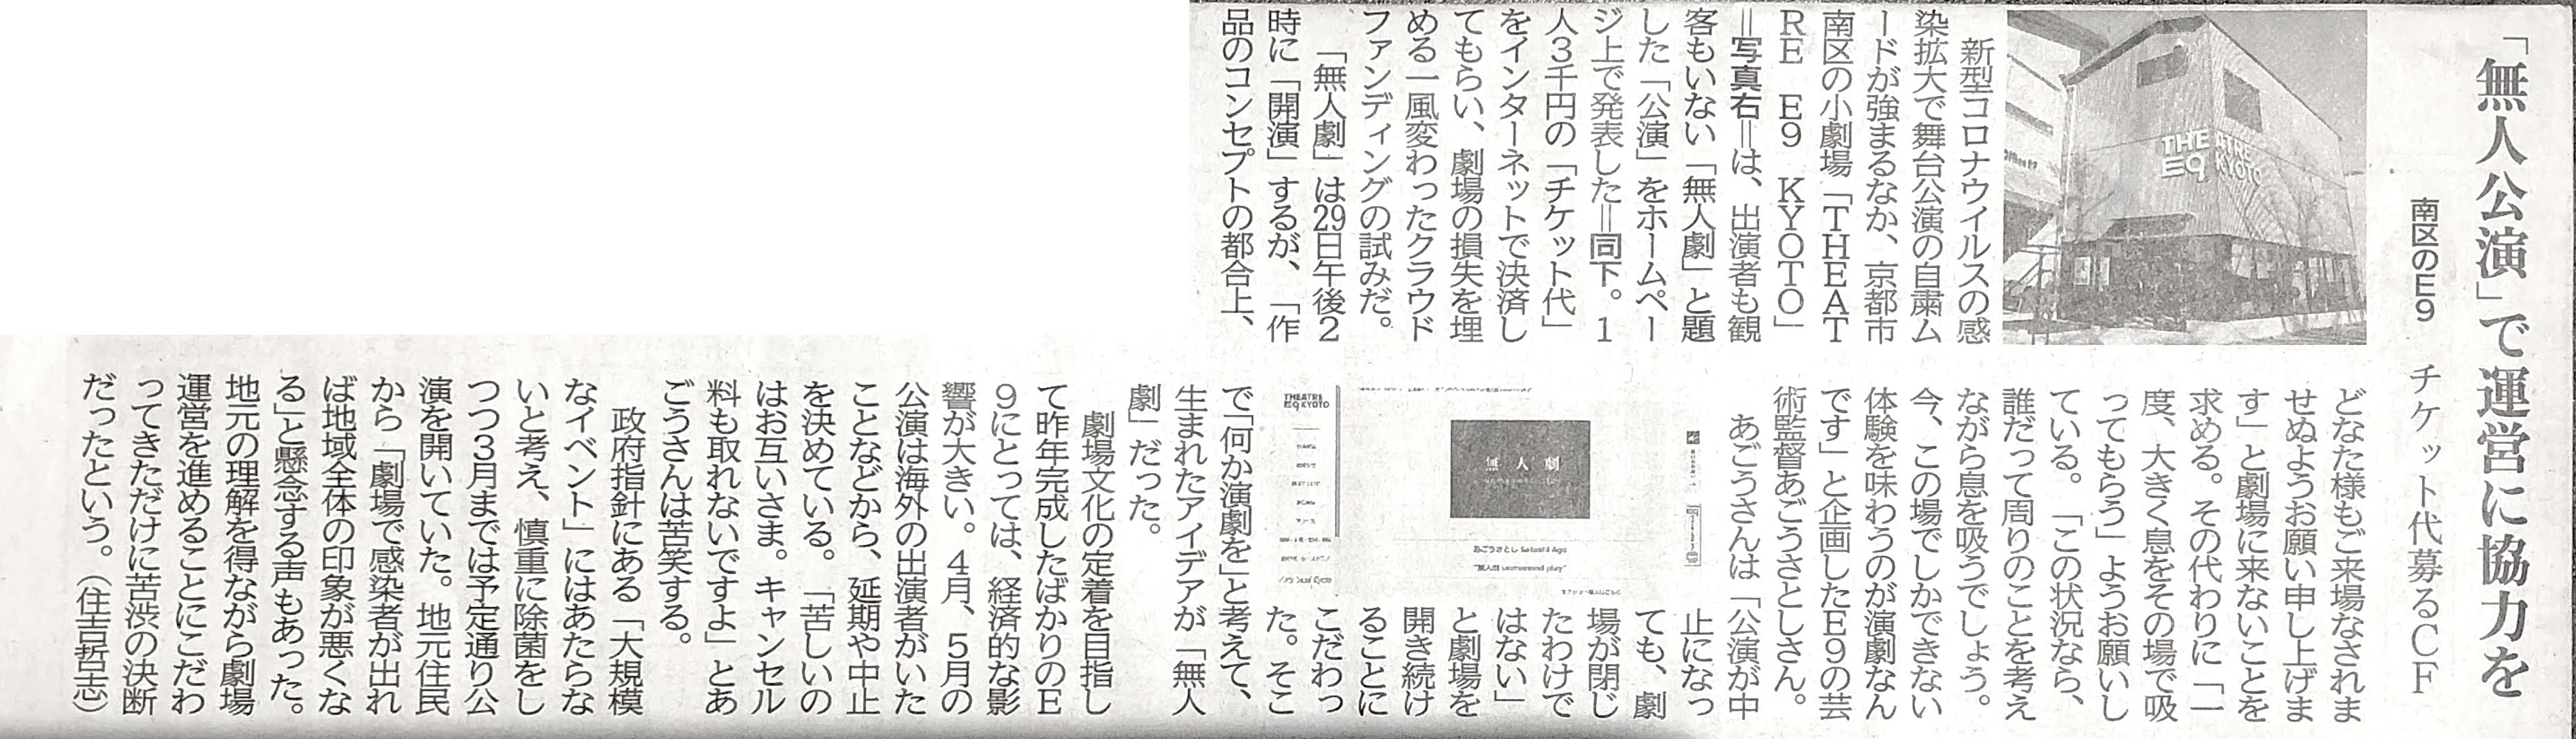 「無人公演」で運営に協力を
南区のE9　チケット代募るCF
THEATRE
E9 KYOTO
新型コロナウイルスの感
染拡大で舞台公演の自粛ム
ードが強まるなか、京都市
南区の小劇場「THEAT
RE　E9　KYOTO」
＝写真右＝は、出演者も観
客もいない「無人劇」と題
した「公演」をホームペー
ジ上で発表した＝同下。1
人3千円の「チケット代」
をインターネットで決済し
てもらい、劇場の損失を埋
める一風変わったクラウド
ファンディングの試みだ。
「無人劇」は29日午後2
時に「開演」するが、「作
品のコンセプトの都合上、
どなた様もご来場なされま
せぬようお願い申し上げま
す」と劇場に来ないことを
求める。その代わりに「一
度、大きく息をその場で吸
ってもらう」ようお願いし
ている。「この状況なら、
誰だって周りのことを考え
ながら息を吸うでしょう。
今、この場でしかできない
体験を味わうのが演劇なん
です」と企画したE9の芸
術監督あごうさとしさん。
あごうさんは「公演が中
止になっ
ても、劇
場が閉じ
たわけで
はない」
と劇場を
開き続け
ることに
こだわっ
た。そこ
で「何か演劇を」と考えて、
生まれたアイデアが「無人
劇」だった。
劇場文化の定着を目指し
て昨年完成したばかりのE
9にとっては、経済的な影
響が大きい。4月、5月の
公演は海外の出演者がいた
ことなどから、延期や中止
を決めている。「苦しいの
はお互いさま。キャンセル
料も取れないですよ」とあ
ごうさんは苦笑する。
政府指針にある「大規模
なイベント」にはあたらな
いと考え、慎重に除菌をし
つつ3月までは予定通り公
演を開いていた。地元住民
から「劇場で感染者が出れ
ば地域全体の印象が悪くな
る」と懸念する声もあった。
地元の理解を得ながら劇場
運営を進めることにこだわ
ってきただけに苦渋の決断
だったという。（住吉哲志）
THEATRE
E9 KYOTO
無人劇
あごうさとし Satoshi Ago
"無人劇 unmanned play"